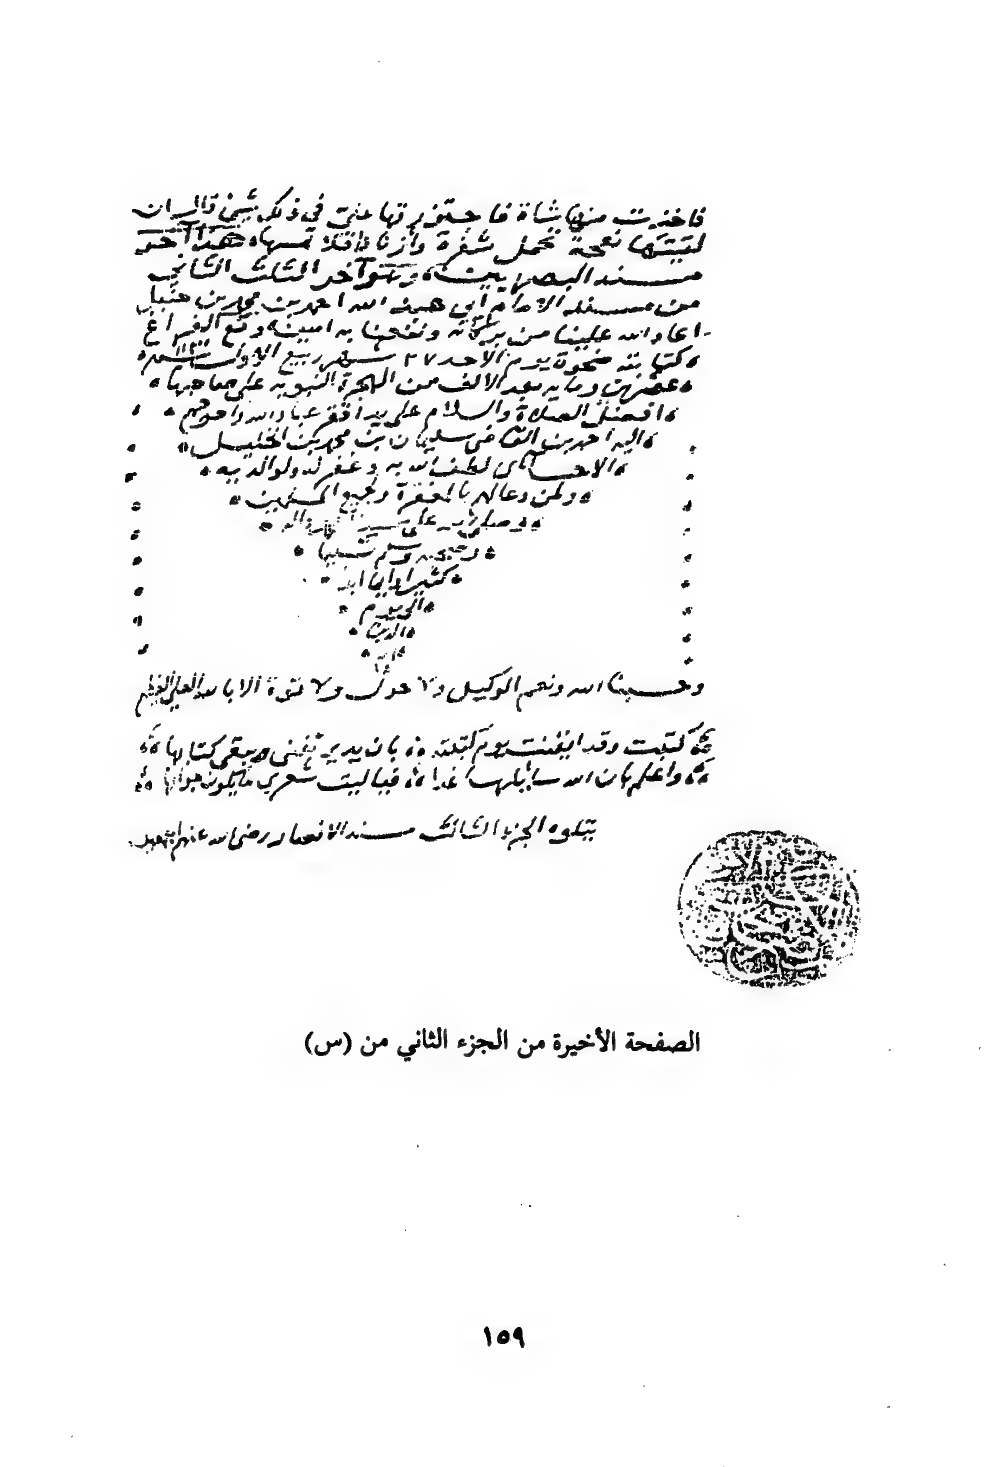 فاخذت منها شاة فاجتزرتها علي في ذلك شيئ قال ان
لقيتها نعجة تحمل شفرة وازنادا فلا تمسها هذا آخر
مسند البصريين وهو آخر الثلث الثاني
من مسند الامام أبي عبد الله احمد بن محمد بن حنبل
اعاد الله علينا من بركاته ونفعنا به امين وقع الفراغ
من كتابته ضحوة يوم الاحد ٢٧ شهر ربيع الاول سنة
عشرين وما ية بعد الالف من الهجرة النبوية على صاحبها
افضل الصلاة والسلام على يد افقر عباد الله واحوجهم
اليه احمد بن القاضي سليمان بن محمد بن الخليل
الاحسائي لطف الله به وغفر له ولوالديه
ولمن دعا لهم بالمغفرة ولجميع المسلمين
وصلى الله على سيدنا محمد واله
وصحبه وسلم تسليما
كثيرا دايما ابدا
الى يوم
الدين
وحسبنا الله ونعم الوكيل ولا حول ولا قوة الا بالله العلي العظيم
كتبت وقد ايقنت يوم كتبته بان يدي تفنى ويبقى كتابها
واعلم بان الله سايلها غدا فيا ليت شعري ما يكون جوابها
يتلوه الجزء الثالث مسند الانصار رضي الله عنهم اجمعين
الصفحة الأخيرة من الجزء الثاني من (س)
١٥٩